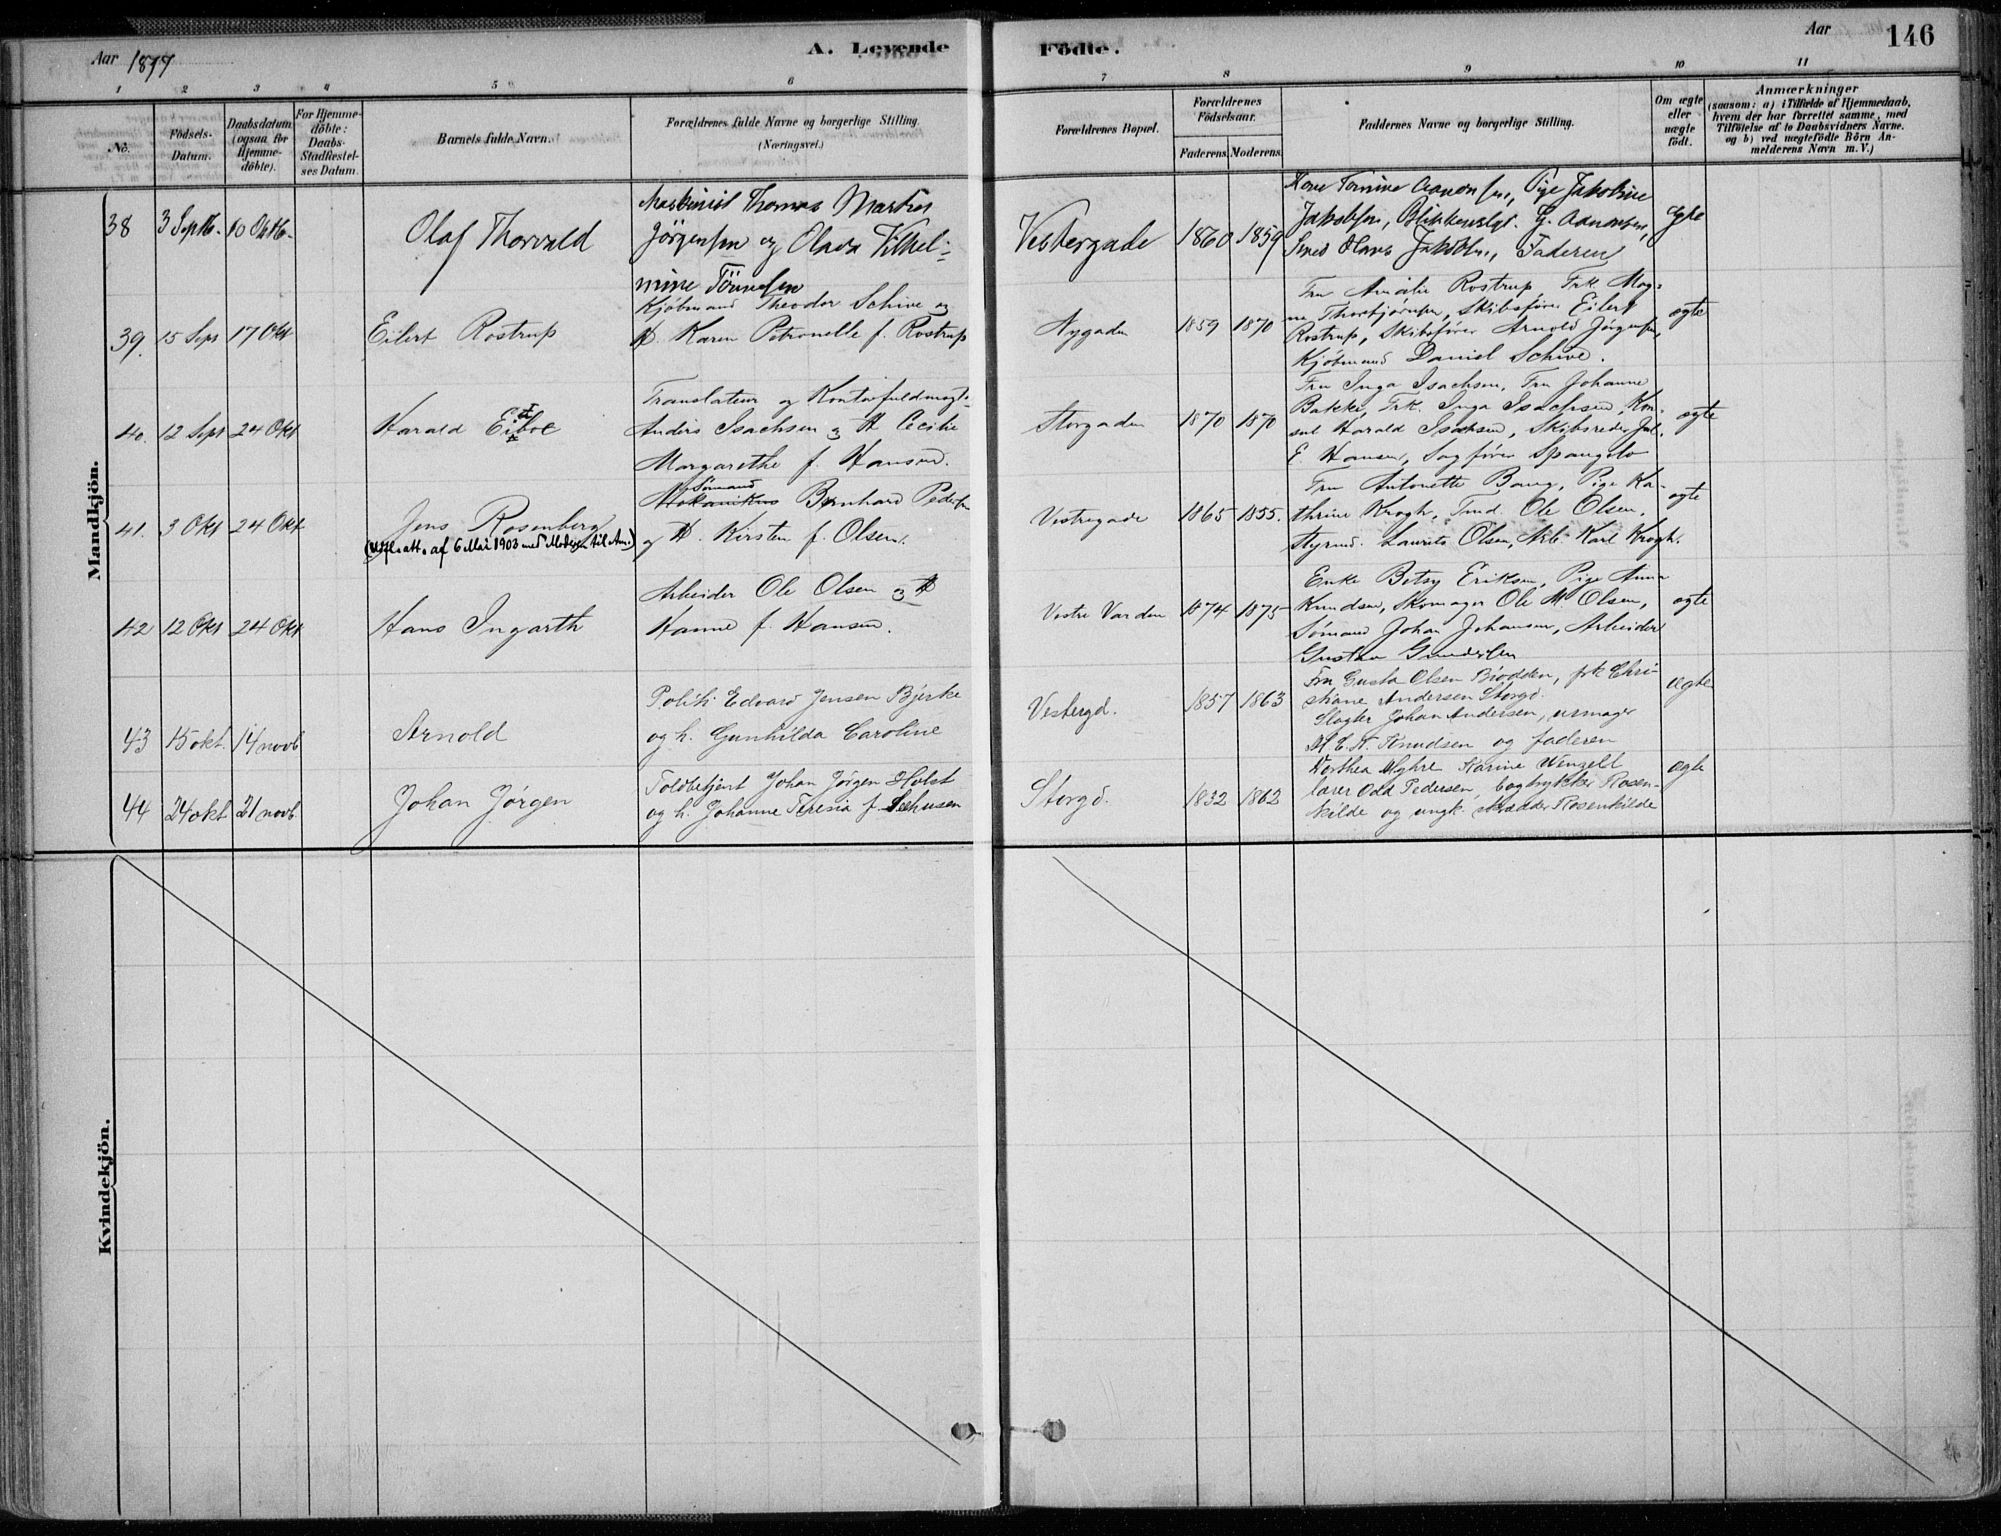 Aar 1897
A. Levende
Födte.
Aar
146
1 2 3 4 5 6 7 8 9 10 11
No.
Födsels-
Datum.
Daabsdatum
(ogsaa for
Hjemme-
döbte).
For Hjemme-
döbte:
Daabs-
Stadfæstel-
ses Datum.
Barnets fulde Navn.
Forældrenes fulde Navne og borgerlige Stilling.
(Næringsvei.)
Forældrenes Bopæl.
Forældrenes
Födselsaar.
Faderens. Moderens.
Faddernes Navne og borgerlige Stilling.
Om ægte
eller
uægte
födt.
Anmærkninger
(saasom: a) i Tilfælde af Hjemmedaab,
hvem der har forrettet samme, med
Tilföielse af to Daabsvidners Navne.
og b) ved uægtefödte Börn An-
melderens Navn m. V.)
Mandkjön.
38 3 Septb. 10 Oktb.
Olaf Thorvald
Maskinist Thomas Martin
Jörgensen og Olava Vilhel-
mine Tönnesen
Vestergade 1860 1859
Kone Tomine Aanonsen, Pige Jakobine
Jakobsen, Blikkenslgt. G. Aanonsen,
Smed Olaus Jakobsen, Faderen
Ægte
39. 15 Sept 17 Okt
Eilert Rostrup
Kjøbmand Theodor Schive og
H. Karen Petronelle f. Rostrup
Nygaden 1859 1870
Fru Amalie Rostrup, Frk Mag-
na Thorbjørnsen, Skibsfører Eilert
Rostrup, Skibsfører Arnold Jørgensen,
Kjøbmand Daniel Schive.
ægte
40. 12 Sept 24 Okt
Harald Eiboe
Translateur og Kontorfuldmægt.
Anders Isachsen og H Cecilie
Margarethe f. Hansen.
Storgaden 1870 1870
Fru Inga Isachsen, Fru Johanne
Bakke, Frk. Inga Isachsen, Kon-
sul Harald Isachsen, Skibsreder Jul.
E. Hansen, Sagfører Spangelo
ægte
41. 3 Okt 24 Okt
Jens Rosenberg
(Utfl.att. af 6 Mai 1903 med Moderen til Am.)
Sømand
Mekanikus Bernhard Pedersen
og H. Kirsten f. Olsen.
Vestregade 1865 1855.
Fru Antonette Bang, Pige Ka-
thrine Krogh, Tmd. Ole Olsen,
Styrmd. Laurits Olsen, Arb. Karl Krogh.
ægte
42 12 Okt 24 Okt
Hans Ingarth
Arbeider Ole Olsen og H
Hanne f. Hansen.
Vestre Varden 1874 1875
Enke Betsy Eriksen, Pige Anna
Knudsen, Skomager Ole M. Olsen,
Sømand Johan Johansen, Arbeider
Gustav Gundersen
ægte
43 15 okt. 14 novb
Arnold
Politi Edvard Jensen Bjerke
og h. Gunhilda Caroline
Vestergd. 1857 1863
Fru Gusta Olsen Brodden, frk Chri-
stiane Andersen Storgd.
Slagter Johan Andersen, urmager
M. C. A. Knudsen og faderen
ægte
44 24 okt 21 novb.
Johan Jørgen
Toldbetjent Johan Jørgen Holst
og h. Johanne Teresia f. Seehusen
Storgd. 1832 1862
Dorthea Myhre Karine Wenzell
lærer Odd Pedersen, bogtrykker Rosen-
kilde og ungk. Skrædder Rosenkilde
ægte
Kvindekjön.